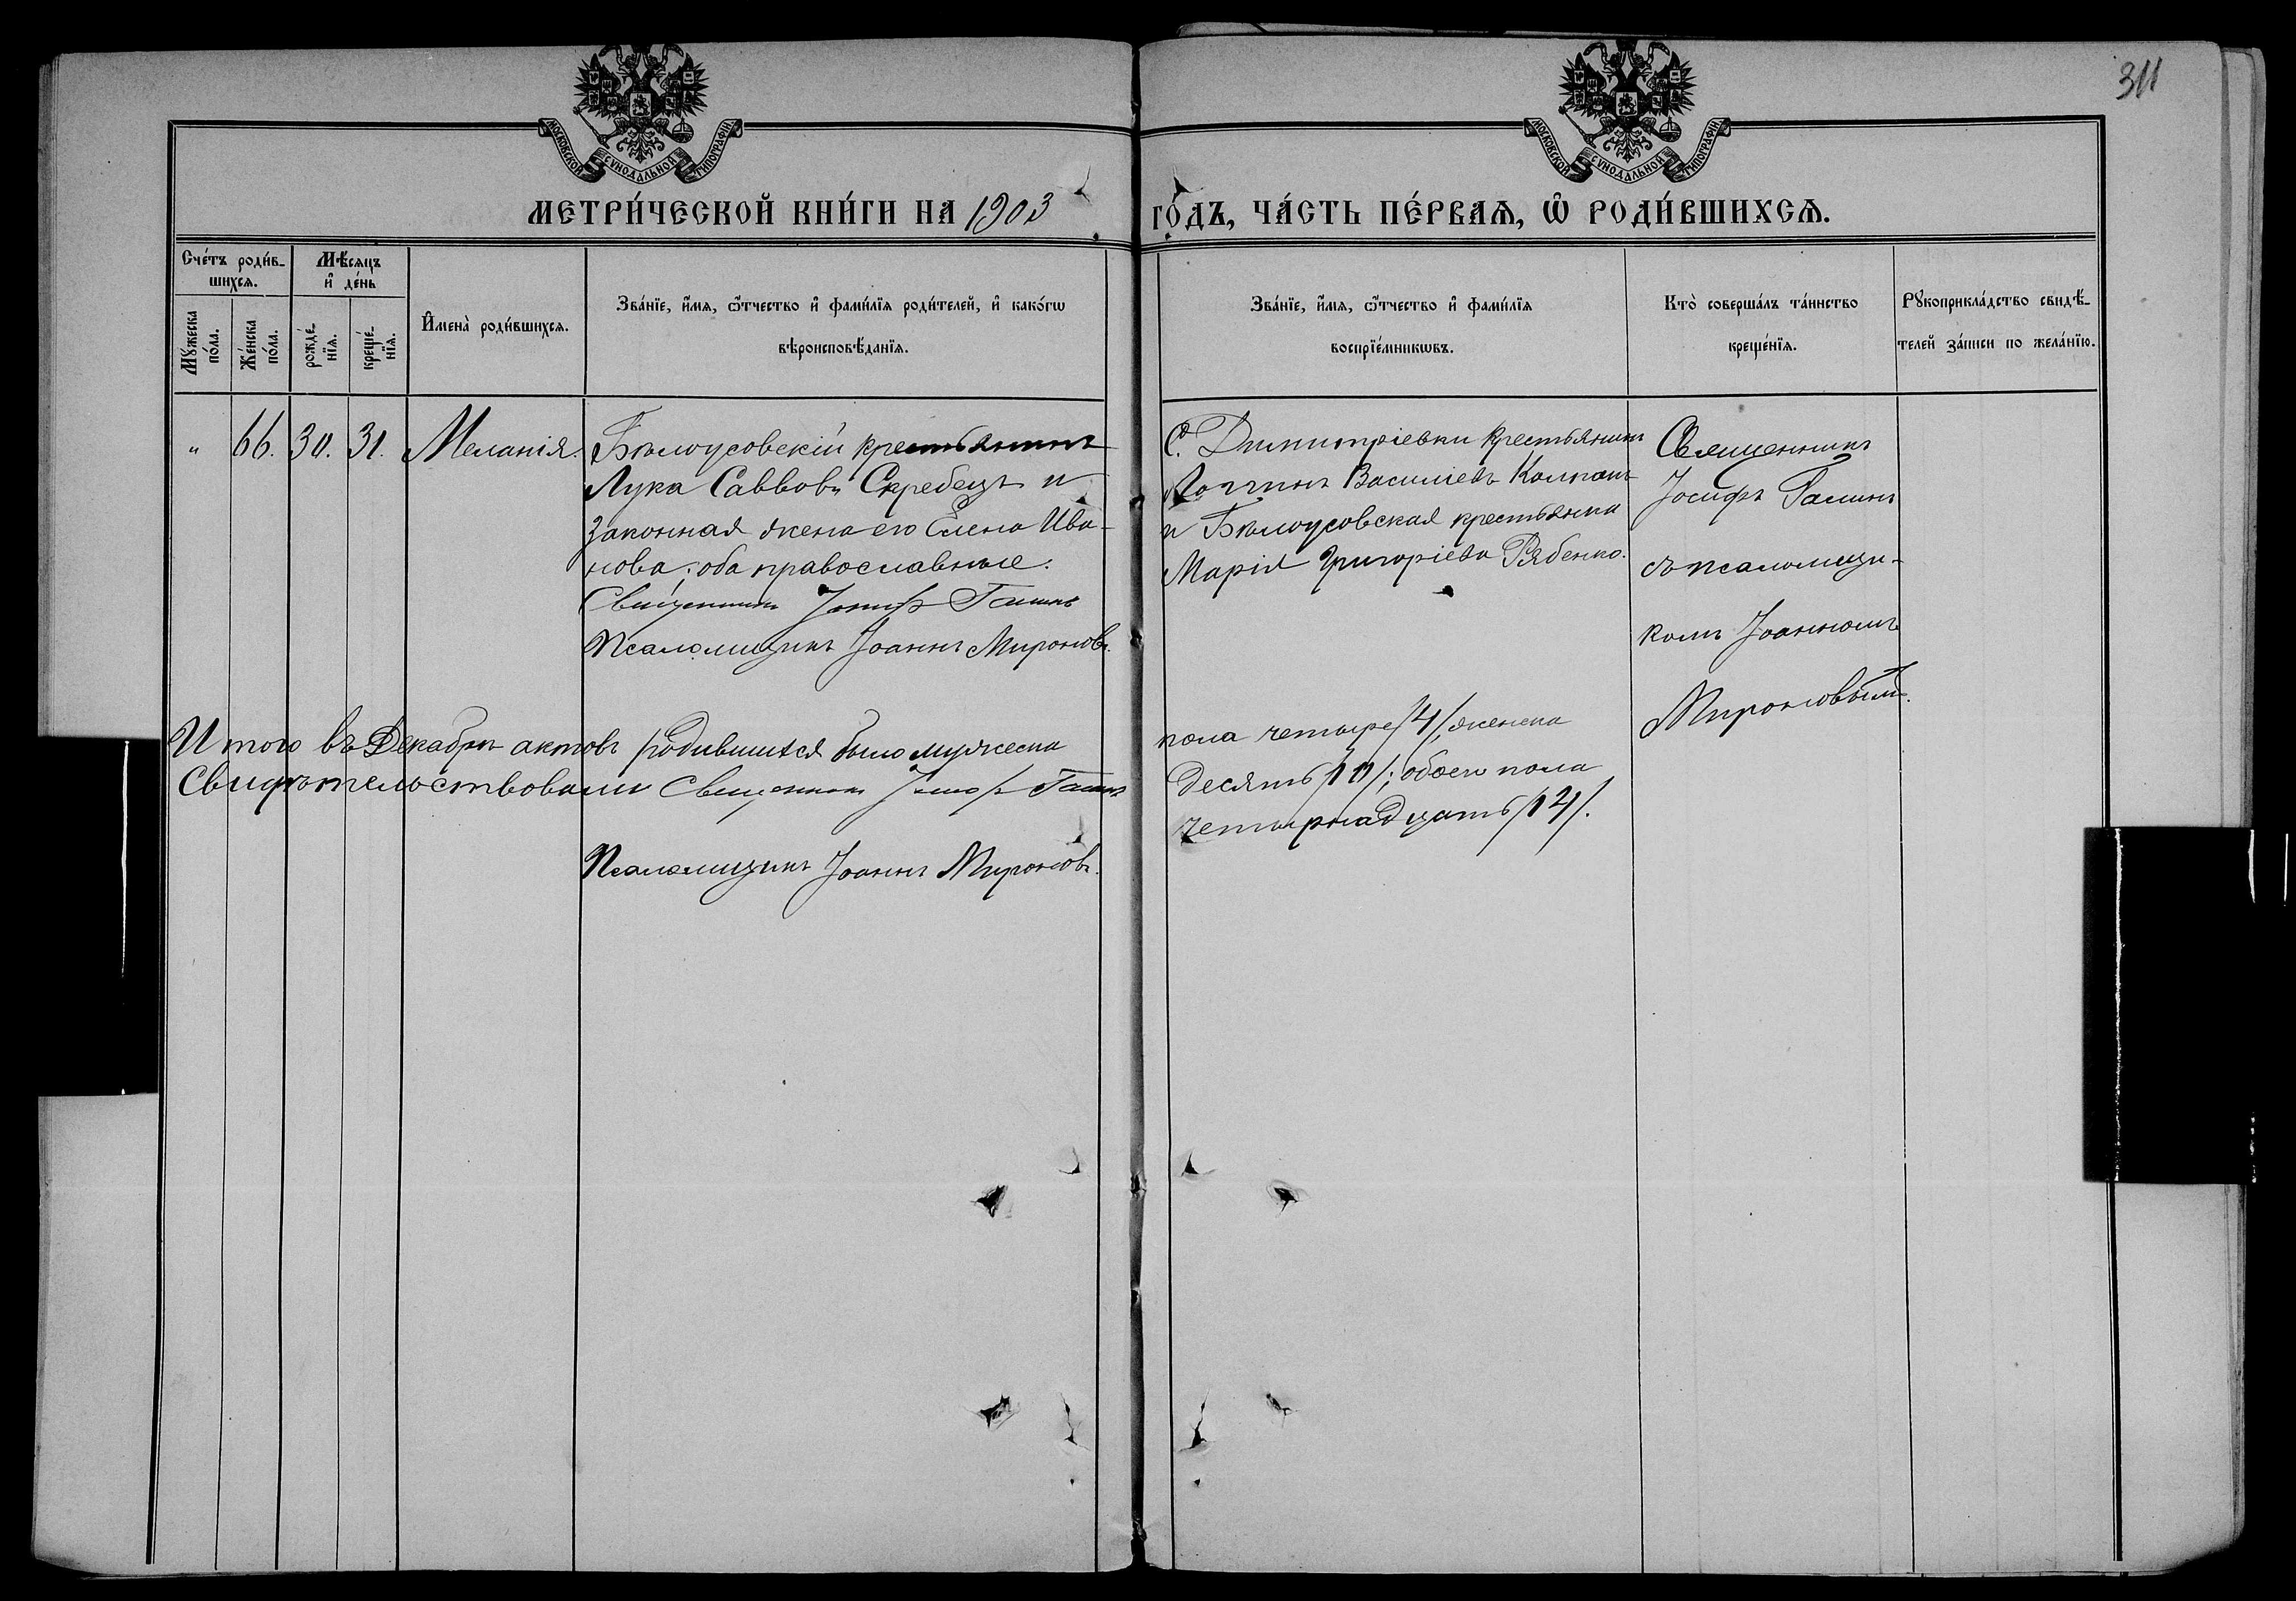 311
МОСКОВСКОЙ СѴНОДАЛЬНОЙ ТИПОГРАФІИ
МОСКОВСКОЙ СѴНОДАЛЬНОЙ ТИПОГРАФІИ
МЕТРИ́ЧЕСКОЙ КНИ́ГИ НА 1903
ГО́ДЪ, ЧА́СТЬ ПЕ́РВАѦ, Ѡ҆ РОДИ́ВШИХСѦ.
Сче́тъ роди́в-
шихсѧ.
Мꙋ́жеска
по́ла.
Же́нска
по́ла.
Мѣ́сѧцъ
и҆ де́нь
рожде́-
нїѧ.
креще́-
нїѧ.
И҆мена̀ роди́вшихсѧ.
Зва́нїе, и҆́мѧ, ѻ҆́тчество и҆ фами́лїѧ роди́телей, и҆ како́гѡ
вѣроисповѣ́данїѧ.
Зва́нїе, и҆́мѧ, ѻ҆́тчество и҆ фами́лїѧ
воспрїе́мникѡвъ.
Кто̀ соверша́лъ та́инство
креще́нїѧ.
Рꙋкоприкла́дство свидѣ́-
телей за́писи по жела́нїю.
" 66. 30. 31. Меланія.
Бѣлоусовскій крестьянинъ
Лука Саввовъ Скребецъ и
законная жена его Елена Ива-
нова; оба православные.
Священникъ Іосифъ Галинъ
Псаломщикъ Іоаннъ Мироновъ.
С. Димитріевки крестьянинъ
Логгинъ Василіевъ Колпакъ
и Бѣлоусовская крестьянка
Марія Григоріева Рябенко.
Священникъ
Іосифъ Галинъ
съ псаломщи-
комъ Іоанномъ
Мироновымъ.
Итого въ Декабрѣ актовъ родившихся было мужеска
пола четыре /4/, женска
десять /10/; обоего пола
четырнадцать /14/.
Свидѣтельствовали Священникъ Іосифъ Галинъ
Псаломщикъ Іоаннъ Мироновъ.